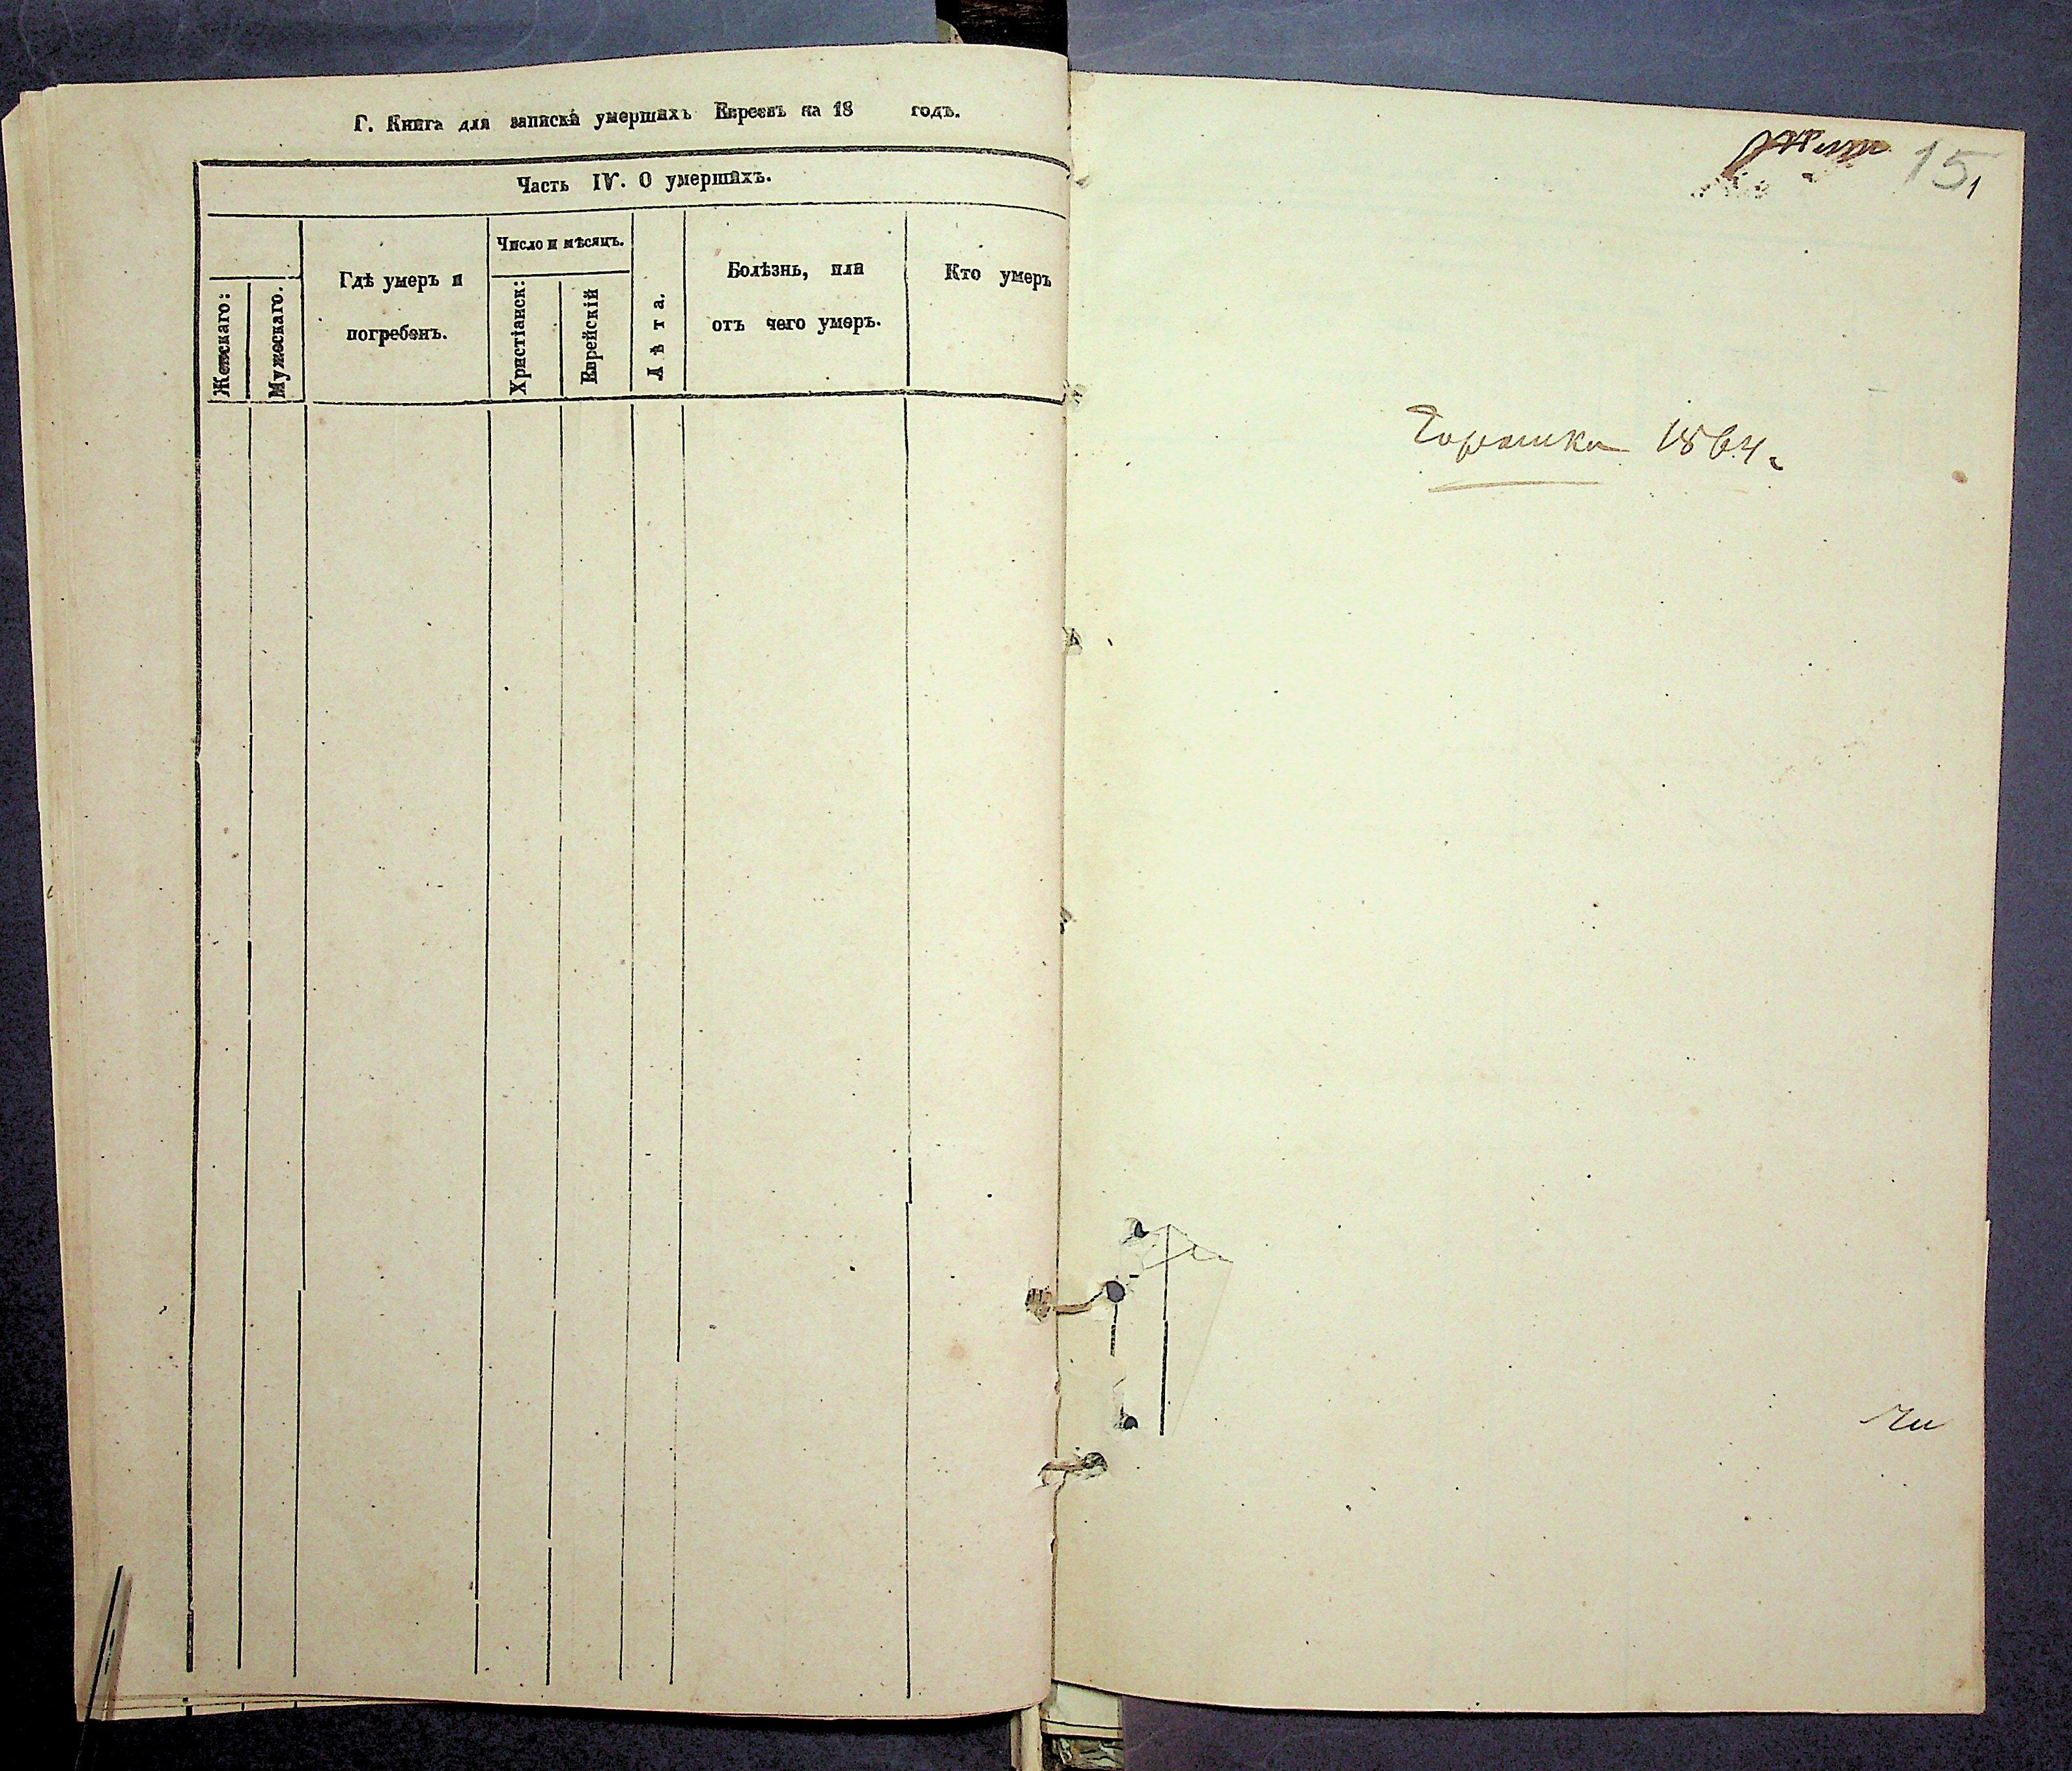 Г. Книга для записки умершихъ Евреевъ на 18 годъ.
Часть IV. О умершихъ.
Женскаго:
Мужескаго.
Гдѣ умеръ и
погребенъ.
Число и мѣсяцъ.
Христіанск:
Еврейскій
Лѣта.
Болѣзнь, или
отъ чего умеръ.
Кто умеръ
15
Горошки 1864 г.